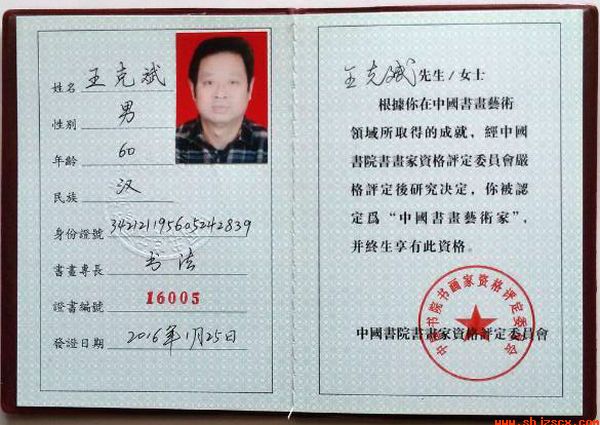 姓名 王克斌
性别 男
年齡 60
民族 汉
身份證號 342121195605242839
書畫專長 书法
證書編號 16005
發證日期 2016年1月25日
王克斌先生/女士
根據你在中國書畫藝術
領域所取得的成就，經中國
書院書畫家資格評定委員會嚴
格評定後研究決定，你被認
定爲“中國書畫藝術家”，
并終生享有此資格。
中国书院书画家资格评定委员会
中國書院書畫家資格評定委員會
www.shjzscx.com